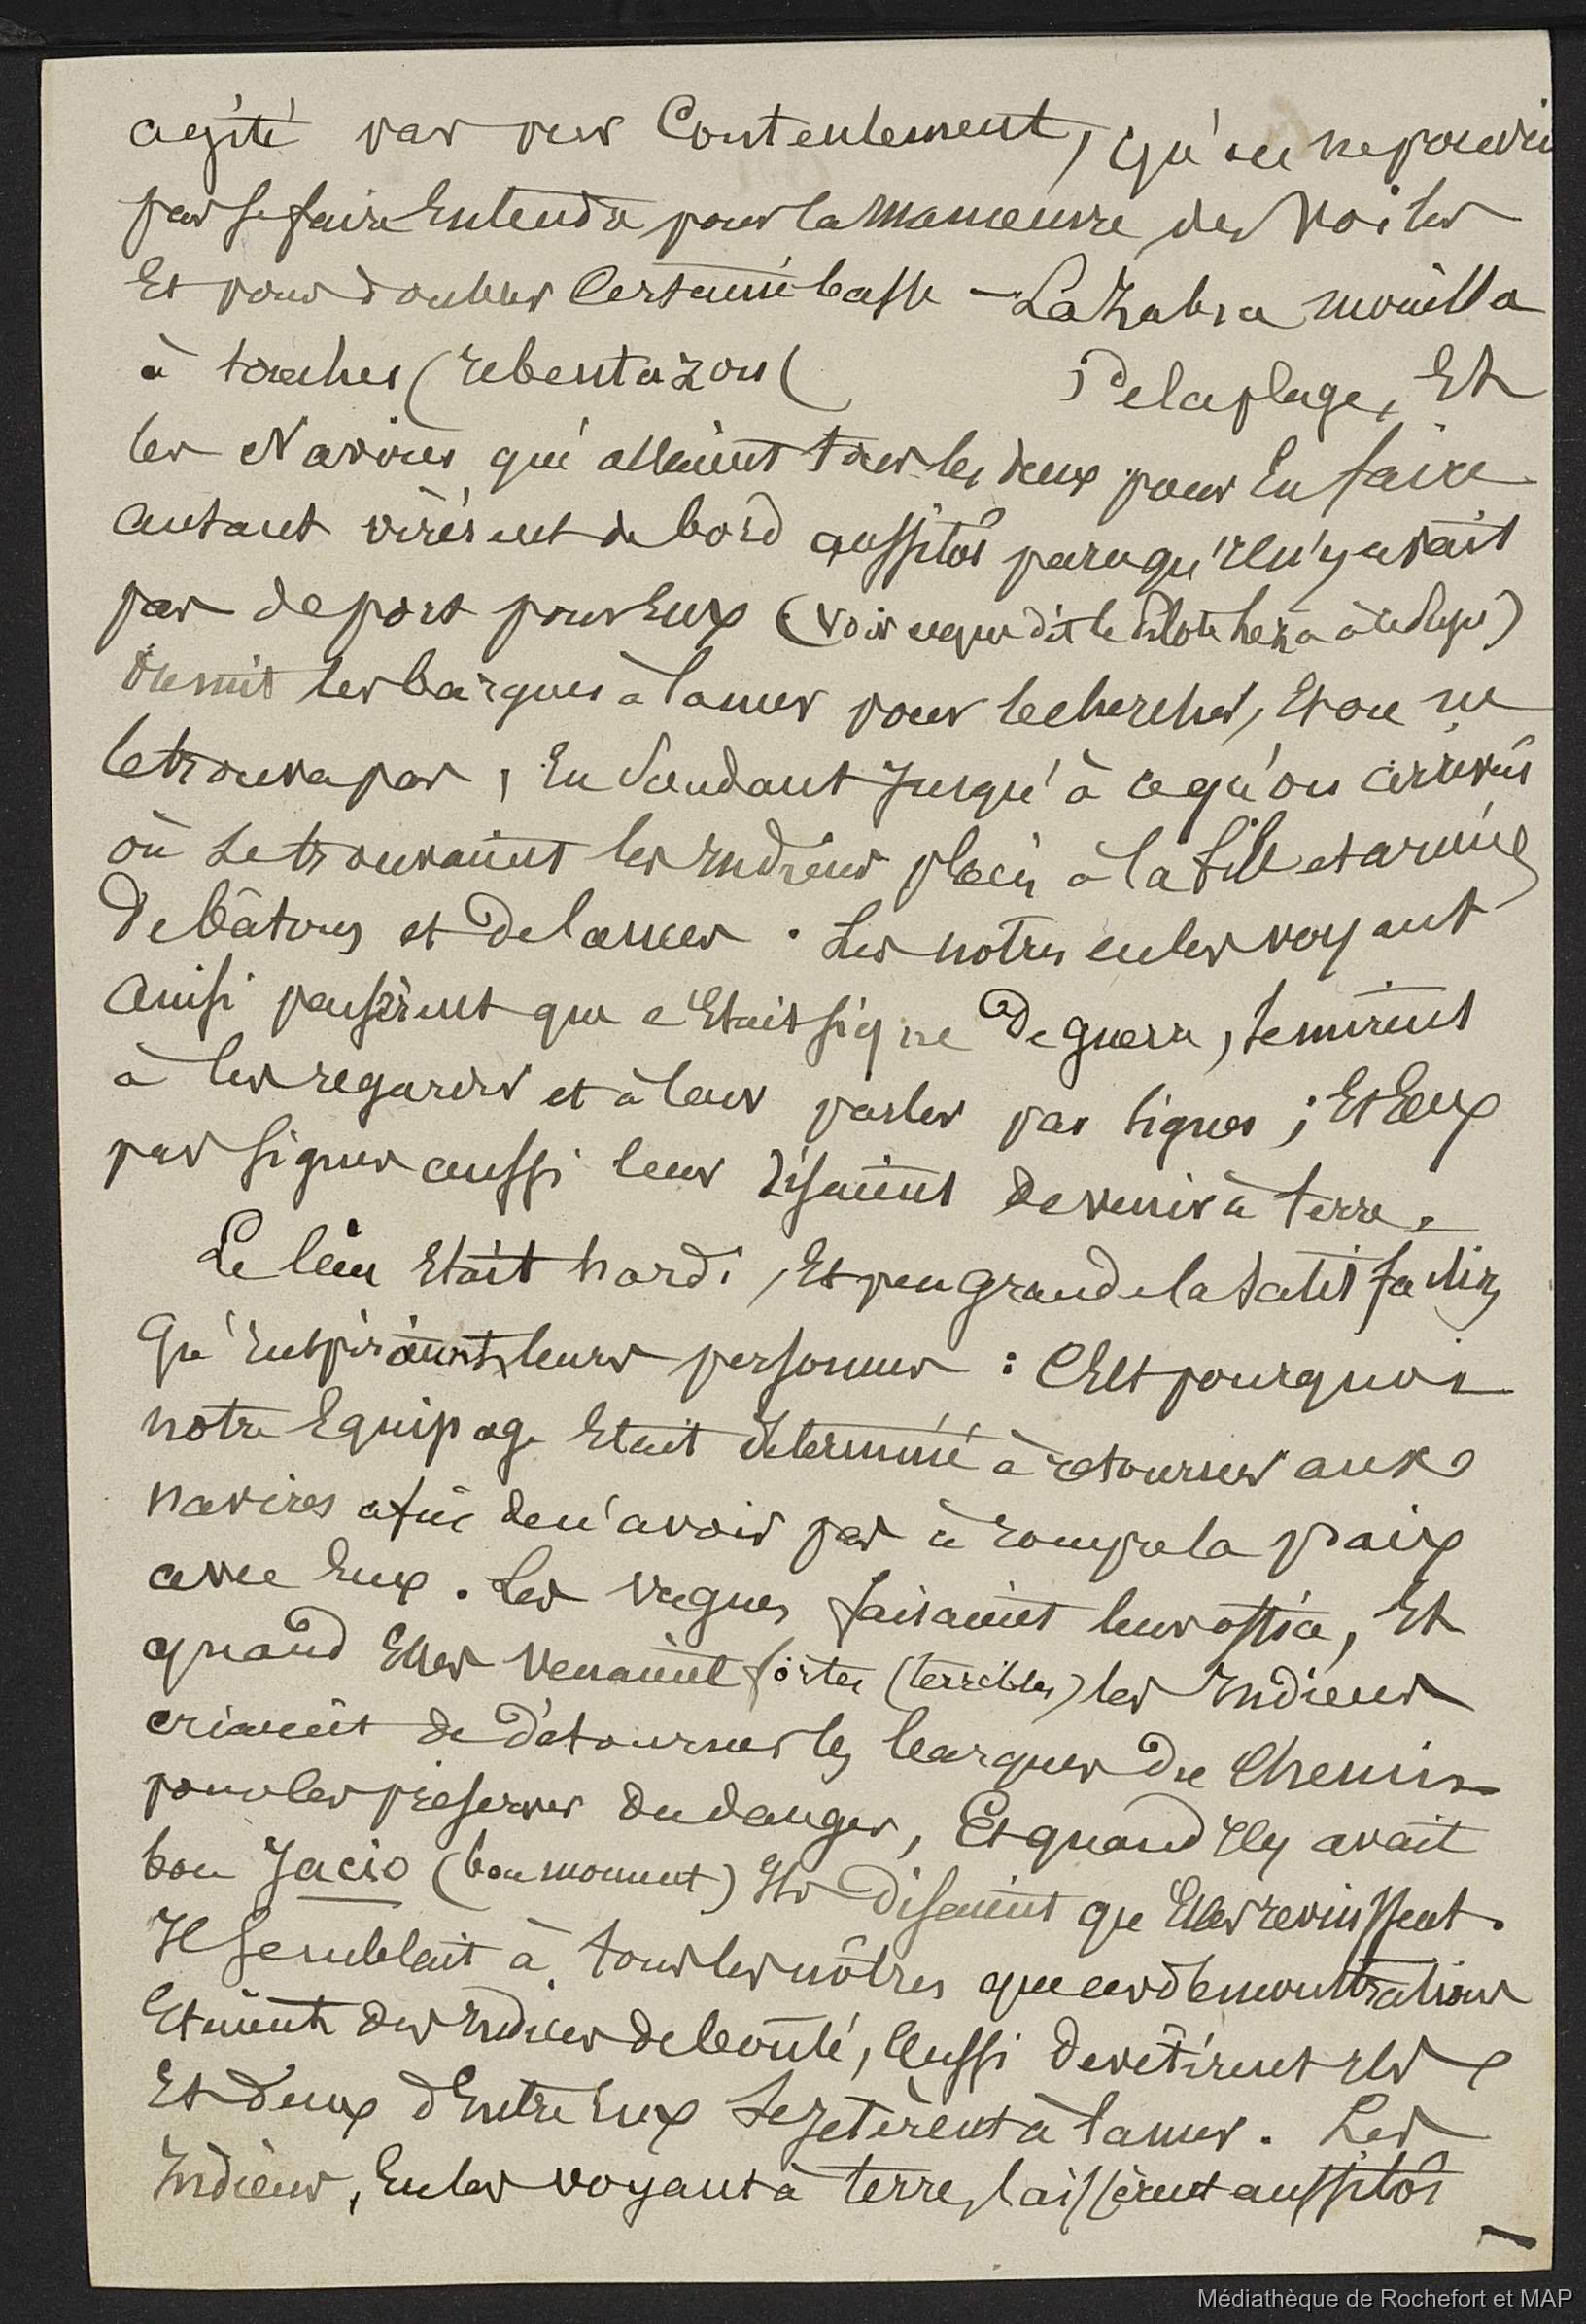 agité par per Contentement, qu'on ne pouvai
pas se faire Entendre pour la Manœuvre des Voiles
Et pour doubler Certaine basse - La Zabra mouilla
à toucher (rebentazon (          ) de la plage, Et
les Navires qui allaient tous les deux pour En faire
autant virèrent de bord aussitôt parcequ'Il n'y avait
pas de port pour Eux (voir ce que dit le Pilote Leza à ce sujet)
On mit les barques à la mer pour le chercher, Et on ne
le trouva pas, En Sondant Jusqu'à ce qu'on arrivât
où se trouvaient les Indiens placés à la file et armés
De bâtons et De lances. Les notres en les voyant
ainsi pensèrent que c'Etait signe De guerre, se mirent
à les regarder et à leur parler par signes ; Et Eux
par signes aussi leur disaient de venir à terre.
Le lieu Etait hardi, Et peu grande la satisfaction
Qu'Inspiraient leurs personnes : C'Est pourquoi
notre Equipage Etait déterminé à retourner aux
navires afin de n'avoir pas à rompre la paix
avec Eux. Les vagues faisaient leur office, Et
quand Elles venaient fortes (terribles) les Indiens
criaient de détourner les barques du Chemin
pour les préserver du danger, Et quand Il y avait
bon Jacio (bon moment) Ils disaient qu'Elles revinssent.
Il semblait à tous les nôtres que ces démonstrations
Etaient des Indices de bonté, Aussi devêtirent ils
Et deux d'Entre Eux Se Jetèrent à la mer. Les
Indiens, En les voyant à terre, laissèrent aussitôt
Médiathèque de Rochefort et MAP